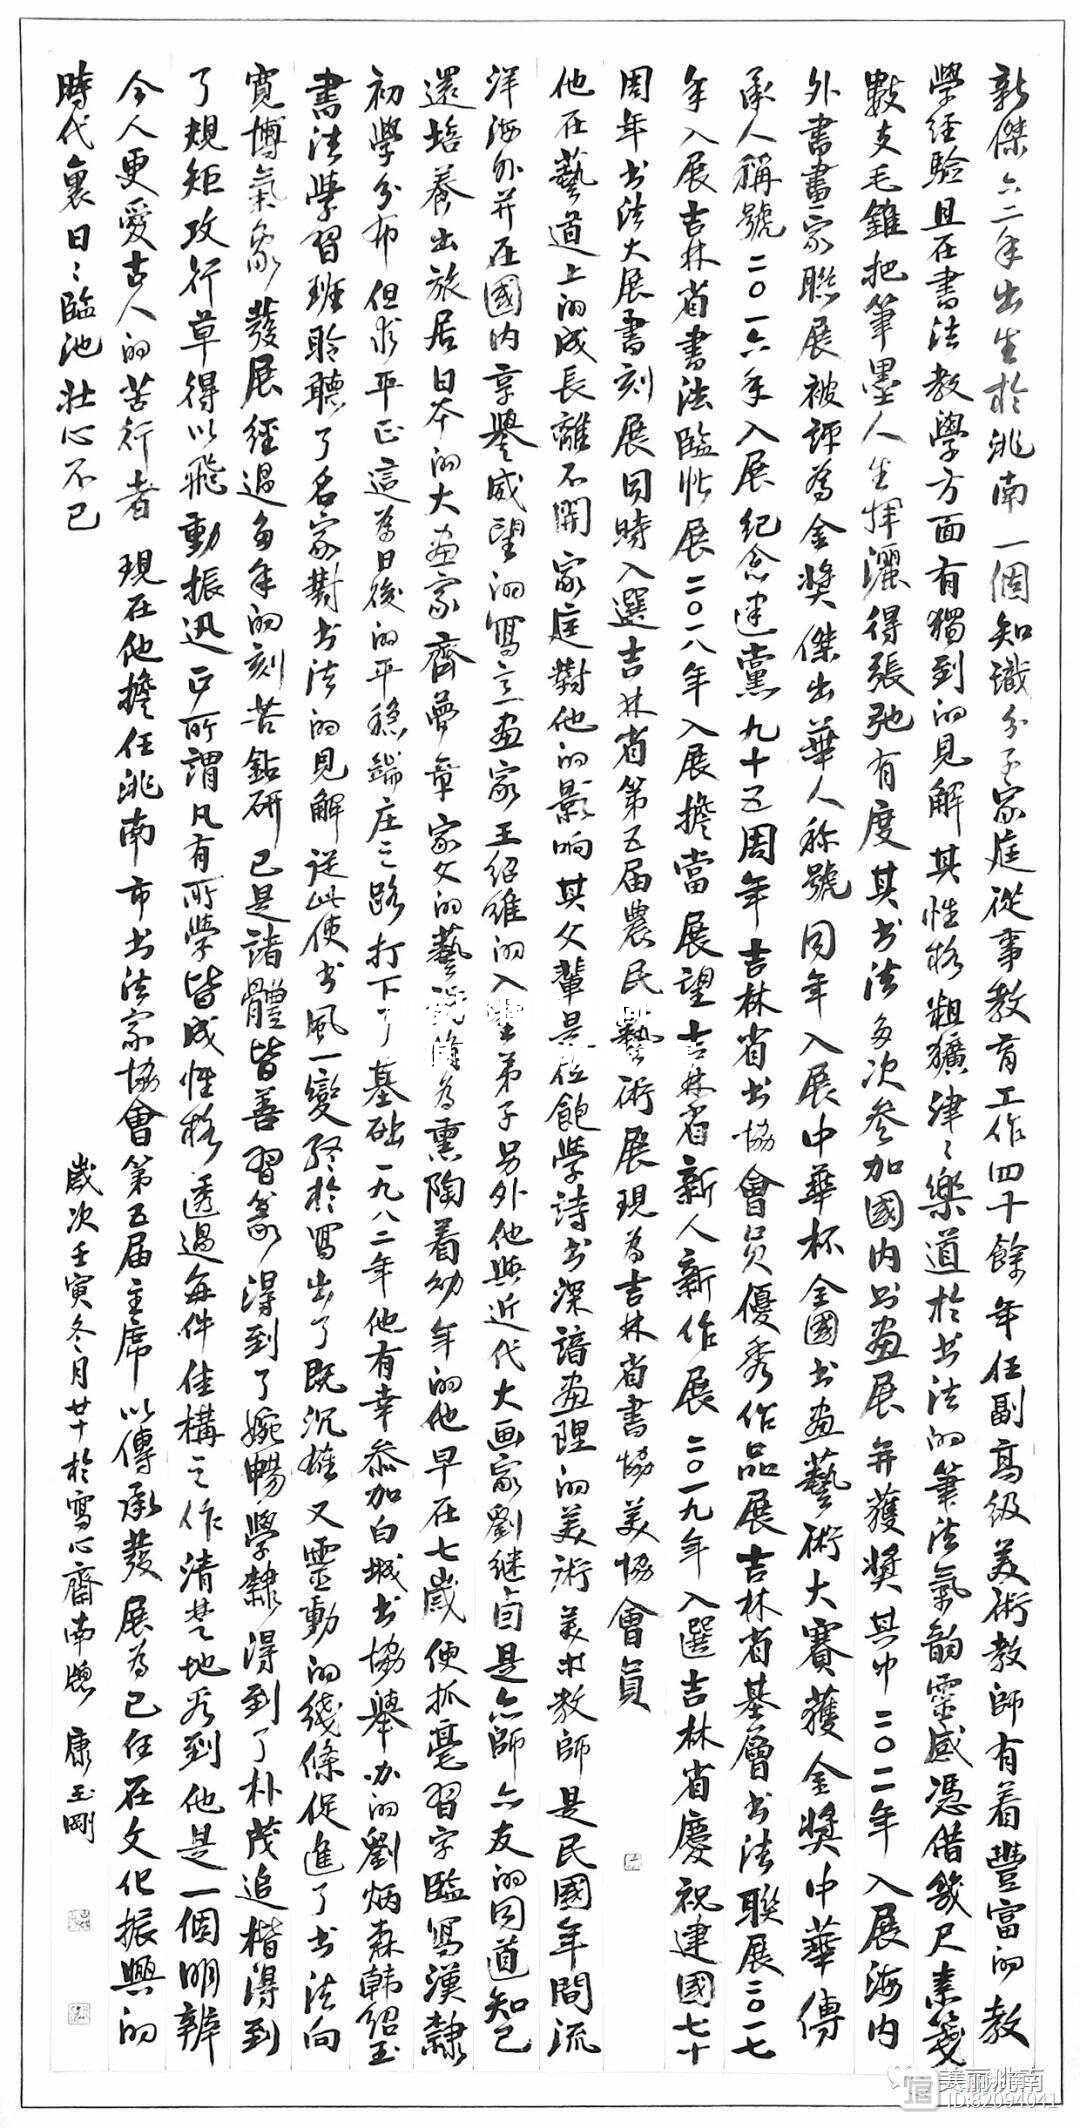 新傑六二年出生於洮南一個知識分子家庭從事教育工作四十餘年任副高級美術教師有着豐富的教
學經驗且在書法教學方面有獨到的見解其性格粗獷津〻樂道於书法的筆法氣韵靈感憑借幾尺素箋
數支毛錐把筆墨人生揮灑得張弛有度其书法多次参加國内书画展并獲獎其中二〇二年入展海内
外書畫家聯展被評為金獎傑出華人称號同年入展中華杯全國书画藝術大賽獲金獎中華傳
承人稱號二〇一六年入展紀念建黨九十五周年吉林省书協會員優秀作品展吉林省基層书法聯展二〇一七
年入展吉林省書法臨帖展二〇一八年入展擔當展望吉林省新人新作展二〇一九年入選吉林省慶祝建國七十
周年书法大展書刻展同時入選吉林省第五届農民藝術展現為吉林省書協美協會員
他在藝道上的成長離不開家庭對他的影响其父輩是位飽學詩书深諳画理的美術美术教師是民國年間流
洋海外并在國内享譽威望的寫意画家王紹維的入室弟子另外他與近代大画家劉继卣是亦師亦友的同道知己
還培養出旅居日本的大画家齊夢章家父的藝術為熏陶着幼年的他早在七歲便抓毫習字臨寫漢隸
初學分布但求平正這為日後的平穩端庄之路打下了基础一九八二年他有幸叅加白城书協舉办的劉炳森韩绍玉
書法學習班聆聽了名家對书法的見解從此使书風一變終於寫出了既沉雄又靈動的线條促進了书法向
寬博氣象發展經過多年的刻苦鉆研已是諸體皆善習篆得到了婉暢學隸得到了朴茂追楷得到
了規矩攻行草得以飛動振迅正所謂凡有所學皆成性格透過每件佳構之作清楚地看到他是一個明辨
今人更愛古人的苦行者現在他擔任洮南市书法家協會第五届主席以傳承發展為己任在文化振興的
時代裏日〻臨池壯心不已
歲次壬寅冬月廿十於寫心齋南牕康玉剛
美丽洮南
ID:82094041